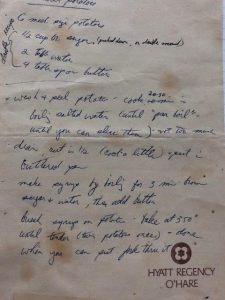 potatoes
6 med size potatoes
1/2 cup br. sugar, (packed down, or double amount)
2 Table water
4 table spoon butter
wash & peel potato - cook 20-30 min in
boiling salted water (until "par boil" -
until you can slice them) - not too much
drain cut in 1/2 (cool a little) - put in
buttered pan
make syrup by boilg for 3 min brown
sugar & water, then add butter
Brush syrup on potatoes - bake at 350°
until tender (turn potatoes once) - done
when you can put fork thru it
HYATT REGENCY
O'HARE